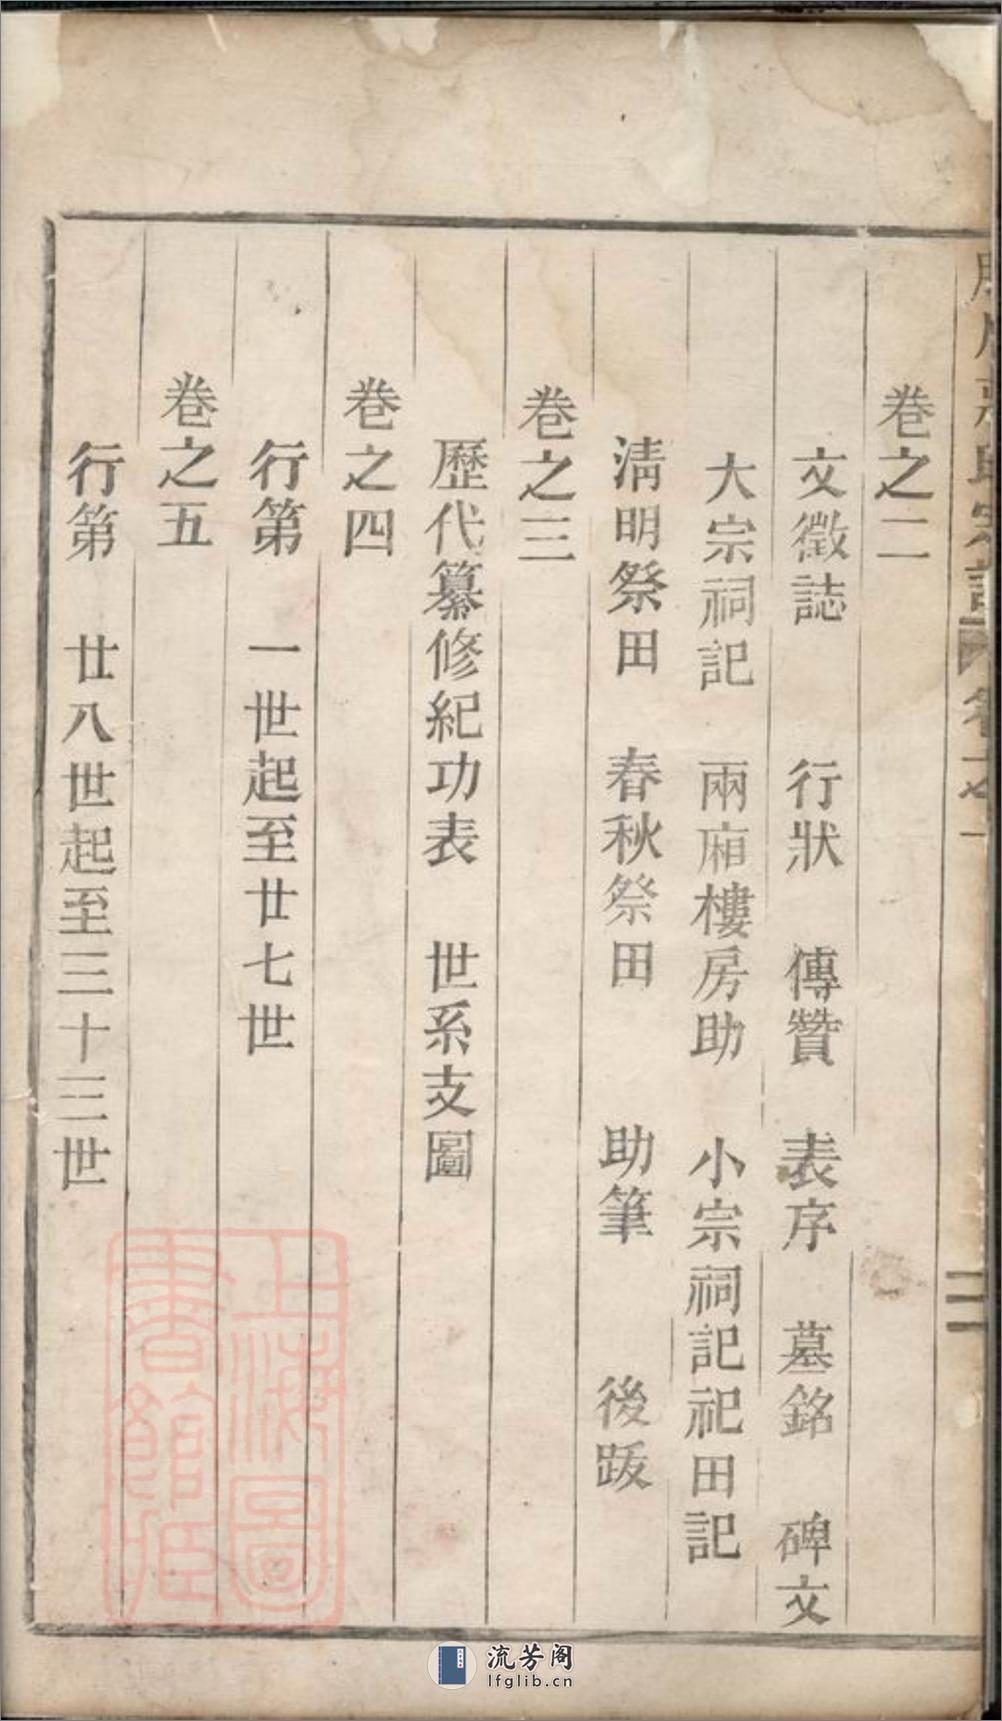 卷之二
文徵誌 行狀 傳贊 表序 墓銘 碑文
大宗祠記 兩廂樓房助 小宗祠記祀田記
清明祭田 春秋祭田 助筆 後跋
卷之三
歷代纂修紀功表 世系支圖
卷之四
行第 一世起至廿七世
卷之五
行第 廿八世起至三十三世
二
上海圖
書館藏
流芳阁
lfglib.cn